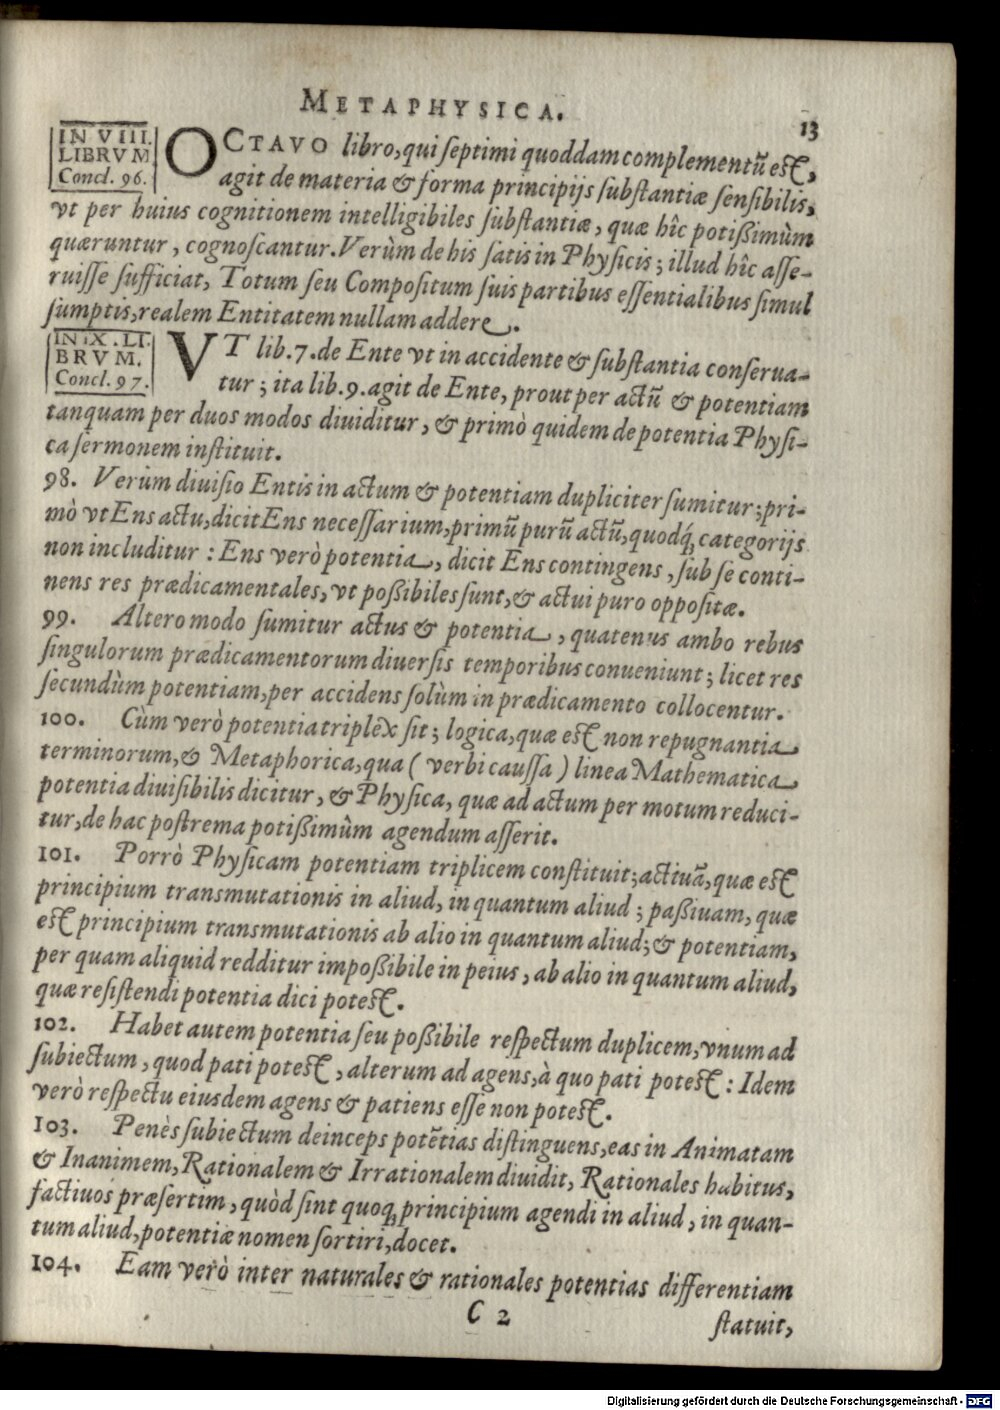 METAPHYSICA.
13
IN VIII.
LIBRVM
Concl. 96.
OCTAVO libro, qui septimi quoddam complementũ est,
agit de materia & forma principijs substantiæ sensibilis,
vt per huius cognitionem intelligibiles substantiæ, quæ hîc potißimùm
quæruntur, cognoscantur. Verùm de his satis in Physicis; illud hîc asse-
ruisse sufficiat, Totum seu Compositum suis partibus essentialibus simul
sumptis, realem Entitatem nullam addere.
IN IX. LI-
BRVM.
Concl. 97.
VT lib. 7. de Ente vt in accidente & substantia conserua-
tur; ita lib. 9. agit de Ente, prout per actũ & potentiam
tanquam per duos modos diuiditur, & primò quidem de potentia Physi-
ca sermonem instituit.
98. Verùm diuisio Entis in actum & potentiam dupliciter sumitur; pri-
mò vt Ens actu, dicit Ens necessarium, primũ purũ actũ, quodq́; categorijs
non includitur: Ens verò potentia, dicit Ens contingens, sub se conti-
nens res prædicamentales, vt poßibiles sunt, & actui puro oppositæ.
99. Altero modo sumitur actus & potentia, quatenus ambo rebus
singulorum prædicamentorum diuersis temporibus conueniunt; licet res
secundùm potentiam, per accidens solùm in prædicamento collocentur.
100. Cùm verò potentia triplex sit; logica, quæ est non repugnantia
terminorum, & Metaphorica, qua (verbi caussa) linea Mathematica
potentia diuisibilis dicitur, & Physica, quæ ad actum per motum reduci-
tur, de hac postrema potißimùm agendum asserit.
101. Porrò Physicam potentiam triplicem constituit; actiuã, quæ est
principium transmutationis in aliud, in quantum aliud; paßiuam, quæ
est principium transmutationis ab alio in quantum aliud; & potentiam,
per quam aliquid redditur impoßibile in peius, ab alio in quantum aliud,
quæ resistendi potentia dici potest.
102. Habet autem potentia seu poßibile respectum duplicem, vnum ad
subiectum, quod pati potest, alterum ad agens, à quo pati potest: Idem
verò respectu eiusdem agens & patiens esse non potest.
103. Penès subiectum deinceps potẽtias distinguens, eas in Animatam
& Inanimem, Rationalem & Irrationalem diuidit, Rationales habitus,
factiuos præsertim, quòd sint quoq; principium agendi in aliud, in quan-
tum aliud, potentiæ nomen sortiri, docet.
104. Eam verò inter naturales & rationales potentias differentiam
C 2
statuit,
Digitalisierung gefördert durch die Deutsche Forschungsgemeinschaft - DFG